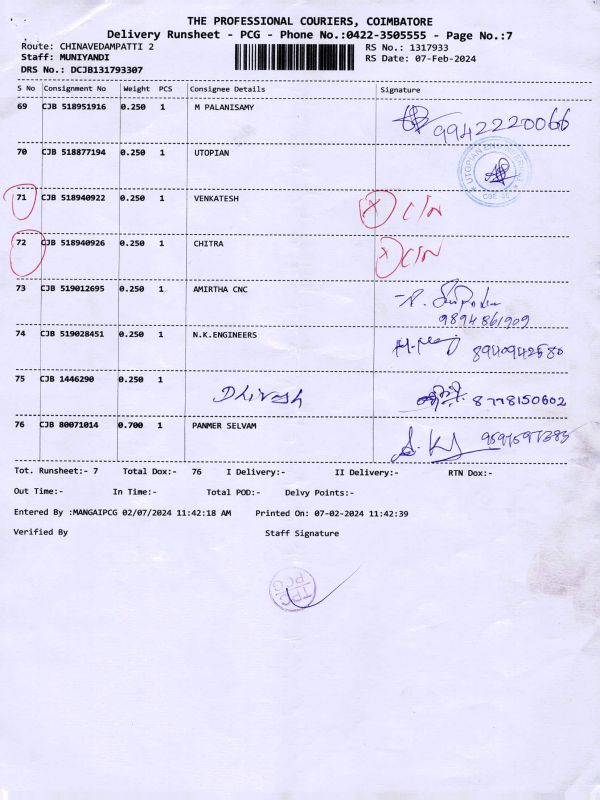 THE PROFESSIONAL COURIERS, COIMBATORE
Delivery Runsheet - PCG - Phone No.:0422-3505555 - Page No.:7
Route: CHINAVEDAMPATTI 2 RS No.: 1317933
Staff: MUNIYANDI RS Date: 07-Feb-2024
DRS No.: DCJB131793307
S No Consignment No Weight PCS Consignee Details Signature
69 CJB 518951916 0.250 1 M PALANISAMY
9942220066
70 CJB 518877194 0.250 1 UTOPIAN
71 CJB 518940922 0.250 1 VENKATESH C/N
72 CJB 518940926 0.250 1 CHITRA C/N
73 CJB 519012695 0.250 1 AMIRTHA CNC
9894861909
74 CJB 519028451 0.250 1 N.K.ENGINEERS 8940942580
75 CJB 1446290 0.250 1 Dhivesh 8778150602
76 CJB 80071014 0.700 1 PANMER SELVAM
Tot. Runsheet:- 7 Total Dox:- 76 I Delivery:- II Delivery:- RTN Dox:-
Out Time:- In Time:- Total POD:- Delvy Points:-
Entered By :MANGAIPCG 02/07/2024 11:42:18 AM Printed On: 07-02-2024 11:42:39
Verified By Staff Signature
TPC
PCG